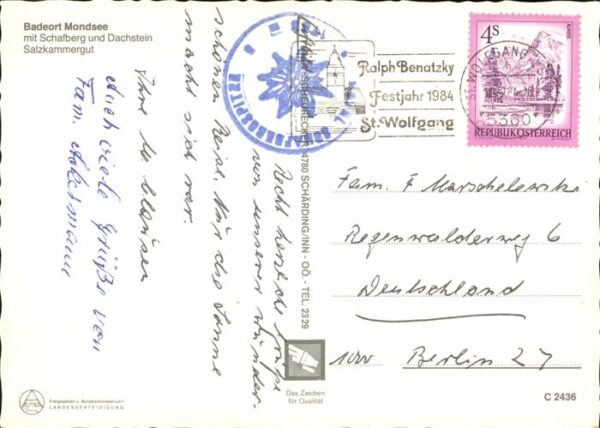 Badeort Mondsee
mit Schafberg und Dachstein
Salzkammergut
Recht herzliche Grüße
von unserer wunder-
schönen Reise. Nur die Sonne
macht sich rar.
Ihre
Auch viele Grüße von
Fam. Ackermann
SCHÄRDING/INN - OÖ. - TEL. 2329
4780
Ralph Benatzky
Festjahr 1984
St. Wolfgang
ST. WOLFGANG
5360
4S
REPUBLIK ÖSTERREICH
Fam. F Marschelewski
Regenwalderweg 6
Deutschland
1000 Berlin 27
Das Zeichen
für Qualität
C 2436
Freigegeben v. Bundesministerium f.
LANDESVERTEIDIGUNG